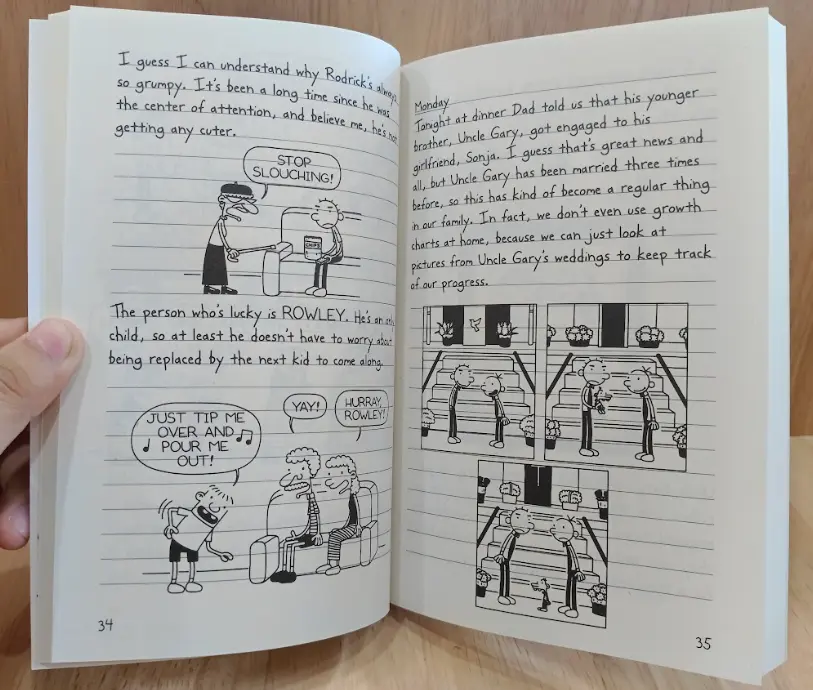 I guess I can understand why Rodrick's always
so grumpy. It's been a long time since he was
the center of attention, and believe me, he's not
getting any cuter.
STOP
SLOUCHING!
The person who's lucky is ROWLEY. He's an only
child, so at least he doesn't have to worry about
being replaced by the next kid to come along.
JUST TIP ME
OVER AND
POUR ME
OUT!
YAY!
HURRAY,
ROWLEY!
34
Monday
Tonight at dinner Dad told us that his younger
brother, Uncle Gary, got engaged to his
girlfriend, Sonja. I guess that's great news and
all, but Uncle Gary has been married three times
before, so this has kind of become a regular thing
in our family. In fact, we don't even use growth
charts at home, because we can just look at
pictures from Uncle Gary's weddings to keep track
of our progress.
35